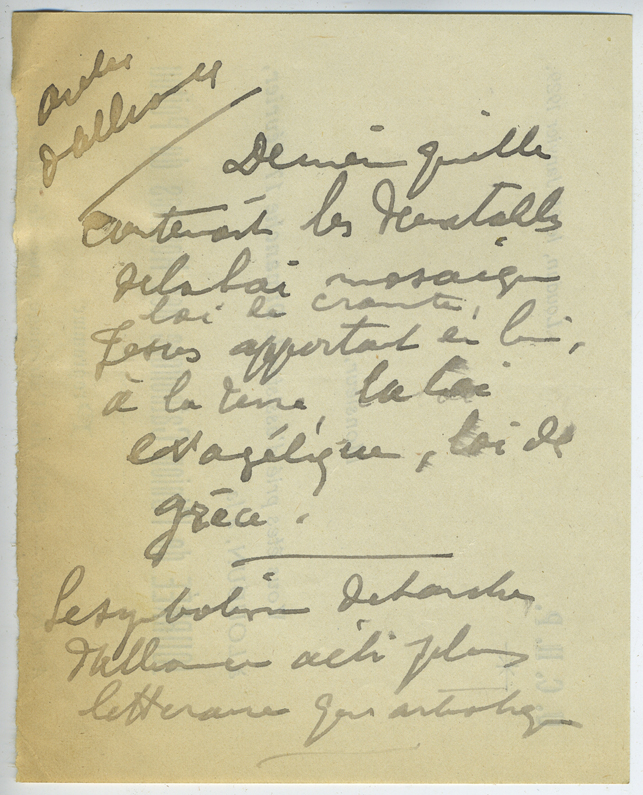 arche
d'alliance
De même qu'elle
contenait les deux tables
de la loi mosaïque
loi de crainte,
Jésus apportait en lui,
à la terre, la loi
evangélique, loi de
grâce.
Le symbolisme de l'arche
d'alliance a été plus
littéraire qu'artistique